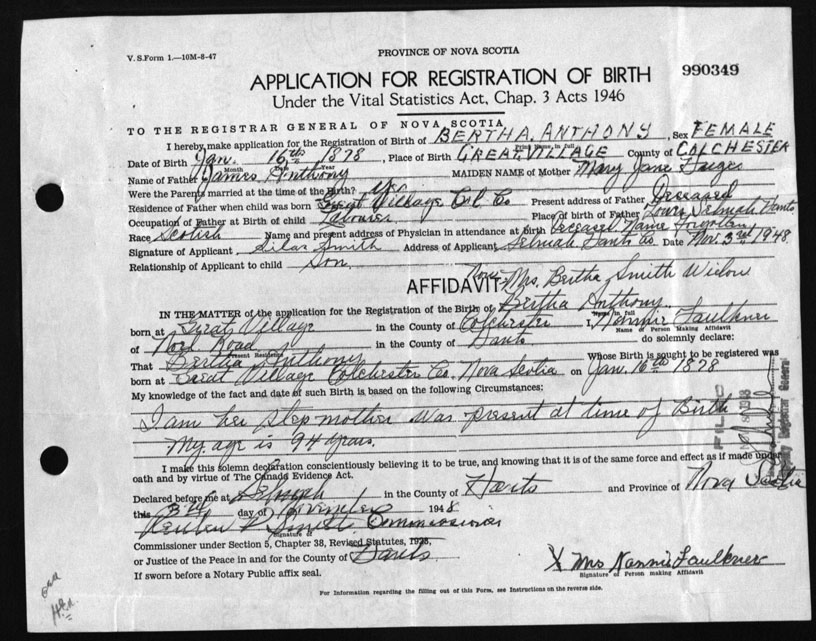 V. S. Form 1.—10M-8-47
PROVINCE OF NOVA SCOTIA
APPLICATION FOR REGISTRATION OF BIRTH
990349
Under the Vital Statistics Act, Chap. 3 Acts 1946
TO THE REGISTRAR GENERAL OF NOVA SCOTIA
I hereby make application for the Registration of Birth of BERTHA ANTHONY, Sex FEMALE
Print Name in full
Date of Birth Jan. 16th 1878, Place of Birth GREAT VILLAGE County of COLCHESTER
Month Day Year
Name of Father James Anthony MAIDEN NAME of Mother Mary Jane
Were the Parents married at the time of the Birth? Yes
Residence of Father when child was born Great Village Col. Co Present address of Father Deceased
Occupation of Father at Birth of child Labourer Place of birth of Father Selmah Hants
Race Scotish Name and present address of Physician in attendance at birth Deceased Name Forgotten
Signature of Applicant Silas Smith Address of Applicant Selmah Hants Co. Date Nov. 3rd 1948
Relationship of Applicant to child Son.
Now Mrs. Bertha Smith Widow
AFFIDAVIT
IN THE MATTER of the application for the Registration of the Birth of Bertha Anthony
Name in full
born at Great Village in the County of Colchester I, Nannie Faulkner
Name of Person Making Affidavit
of Noel Road in the County of Hants do solemnly declare:
Present Residence
That Bertha Anthony Whose Birth is sought to be registered was
born at Great Village Colchester Co. Nova Scotia on Jan. 16th 1878
My knowledge of the fact and date of such Birth is based on the following Circumstances:
I am her step mother was present at time of Birth
My age is 94 years.
I make this solemn declaration conscientiously believing it to be true, and knowing that it is of the same force and effect as if made under
oath and by virtue of The Canada Evidence Act.
Declared before me at Selmah in the County of Hants and Province of Nova Scotia
this 3rd day of November 1948
Reuben P Smith Commissioner
Signature of
Commissioner under Section 5, Chapter 38, Revised Statutes, 1923,
or Justice of the Peace in and for the County of Hants
If sworn before a Notary Public affix seal.
X Mrs Nannie Faulkner
Signature of Person making Affidavit
For Information regarding the filling out of this Form, see Instructions on the reverse side.
FILED